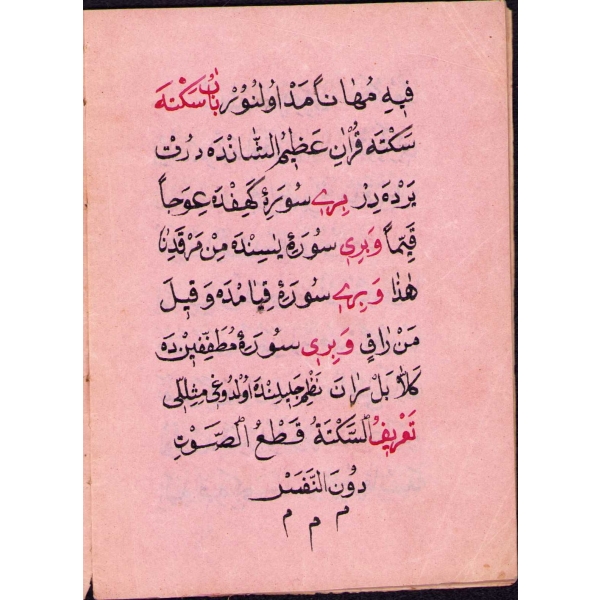 فِيهِ مُهَانًا مَدْ اُولُنُورْ بَابُ سَكْتَهْ
سَكْتَهْ قُرْاٰنِ عَظِيمُ الشَّانْدَهْ دُرْتْ
يَرْدَهْ دِرْ بِرِى سُورَۀِ كَهِفْدَهْ عِوَجاً
قَيِّماً وَبِرِى سُورَۀِ يٰسِنْدَهْ مِنْ مَرْقَدِنَا
هٰذَا وَبِرِى سُورَۀِ قِيَامَدَهْ وَقِيلَ
مَنْ رَاقٍ وَبِرِى سُورَۀِ مُطَفِّفِينْ دَهْ
كَلاَّ بَلْ رَانَ نَظْمِ جَلِيلِنْدَهْ اُولْدُوغِى مِثِللِّى
تَعْرِيفُ السَّكْتَةُ قَطْعُ الصَّوْتِ
دُونَ النَّفَسِ
م م م